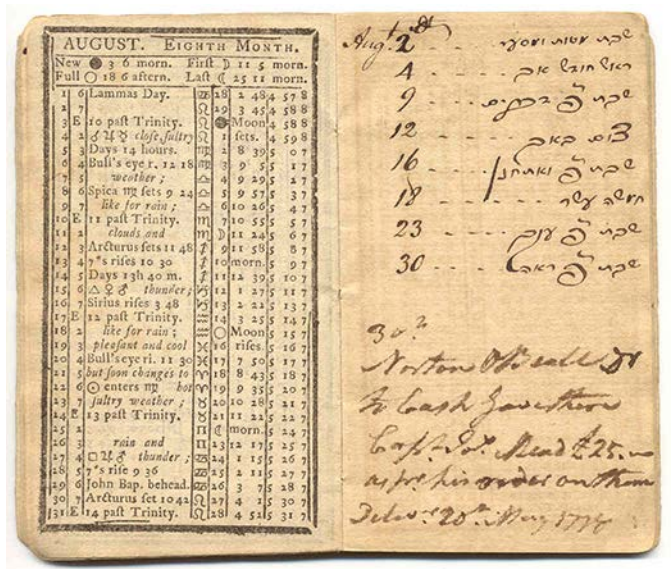 AUGUST. EIGHTH MONTH.
New ● 3 6 morn. First ☽ 11 5 morn.
Full ○ 18 6 aftern. Last ☾ 25 11 morn.
1 6 Lammas Day. ♋ 28 2 48 4 57 8
2 7 ♌ 29 3 45 4 58 8
3 E 10 past Trinity. ♌ ● Moon 4 58 8
4 2 ♂ ♃ ☿ close, sultry ♌ 1 sets. 4 59 8
5 3 Days 14 hours. ♍ 2 8 39 5 0 7
6 4 Bull's eye r. 12 18 ♍ 3 9 5 5 1 7
7 5 weather; ♎ 4 9 29 5 2 7
8 6 Spica ♍ sets 9 24 ♎ 5 9 57 5 3 7
9 7 like for rain; ♎ 6 10 26 5 4 7
10 E 11 past Trinity. ♏ 7 10 55 5 5 7
11 2 clouds and ♏ ☽ 11 24 5 6 7
12 3 Arcturus sets 11 48 ♐ 9 11 58 5 8 7
13 4 7*s rises 10 30 ♐ 10 morn. 5 9 7
14 5 Days 13h 40 m. ♐ 11 12 39 5 10 7
15 6 △ ♀ ♂ thunder; ♑ 12 1 27 5 11 7
16 7 Sirius rises 3 48 ♑ 13 2 22 5 13 7
17 E 12 past Trinity. ♒ 14 3 25 5 14 7
18 2 like for rain; ♒ ○ Moon 5 15 7
19 3 pleasant and cool ♓ 16 rises. 5 16 7
20 4 Bull's eye ri. 11 30 ♓ 17 7 50 5 17 7
21 5 but soon changes to ♈ 18 8 43 5 18 7
22 6 ☉ enters ♍ hot ♈ 19 9 35 5 20 7
23 7 sultry weather; ♉ 20 10 28 5 21 7
24 E 13 past Trinity. ♉ 21 11 22 5 22 7
25 2 ♊ ☾ morn. 5 24 7
26 3 rain and ♊ 23 12 17 5 25 7
27 4 □ ♃ ♂ thunder; ♋ 24 1 15 5 26 7
28 5 7*s rise 9 36 ♋ 25 2 11 5 27 7
29 6 John Bap. behead. ♋ 26 3 7 5 28 7
30 7 Arcturus set 10 42 ♌ 27 4 1 5 30 7
31 E 14 past Trinity. ♌ 28 4 52 5 31 7
Augt. 2d .... שבת מטות ומסעי
4 .... ראש חודש אב
9 .... שבת פ דברים
12 .... צום באב
16 .... שבת פ ואתחנן
18 .... חמשה עשר
23 .... שבת פ עקב
30 .... שבת פ ראה
30.
Norton & Beall Dr
To Cash gave them
Capt. Jos. Mead £25.
as pr. his order on them
20th May 1778